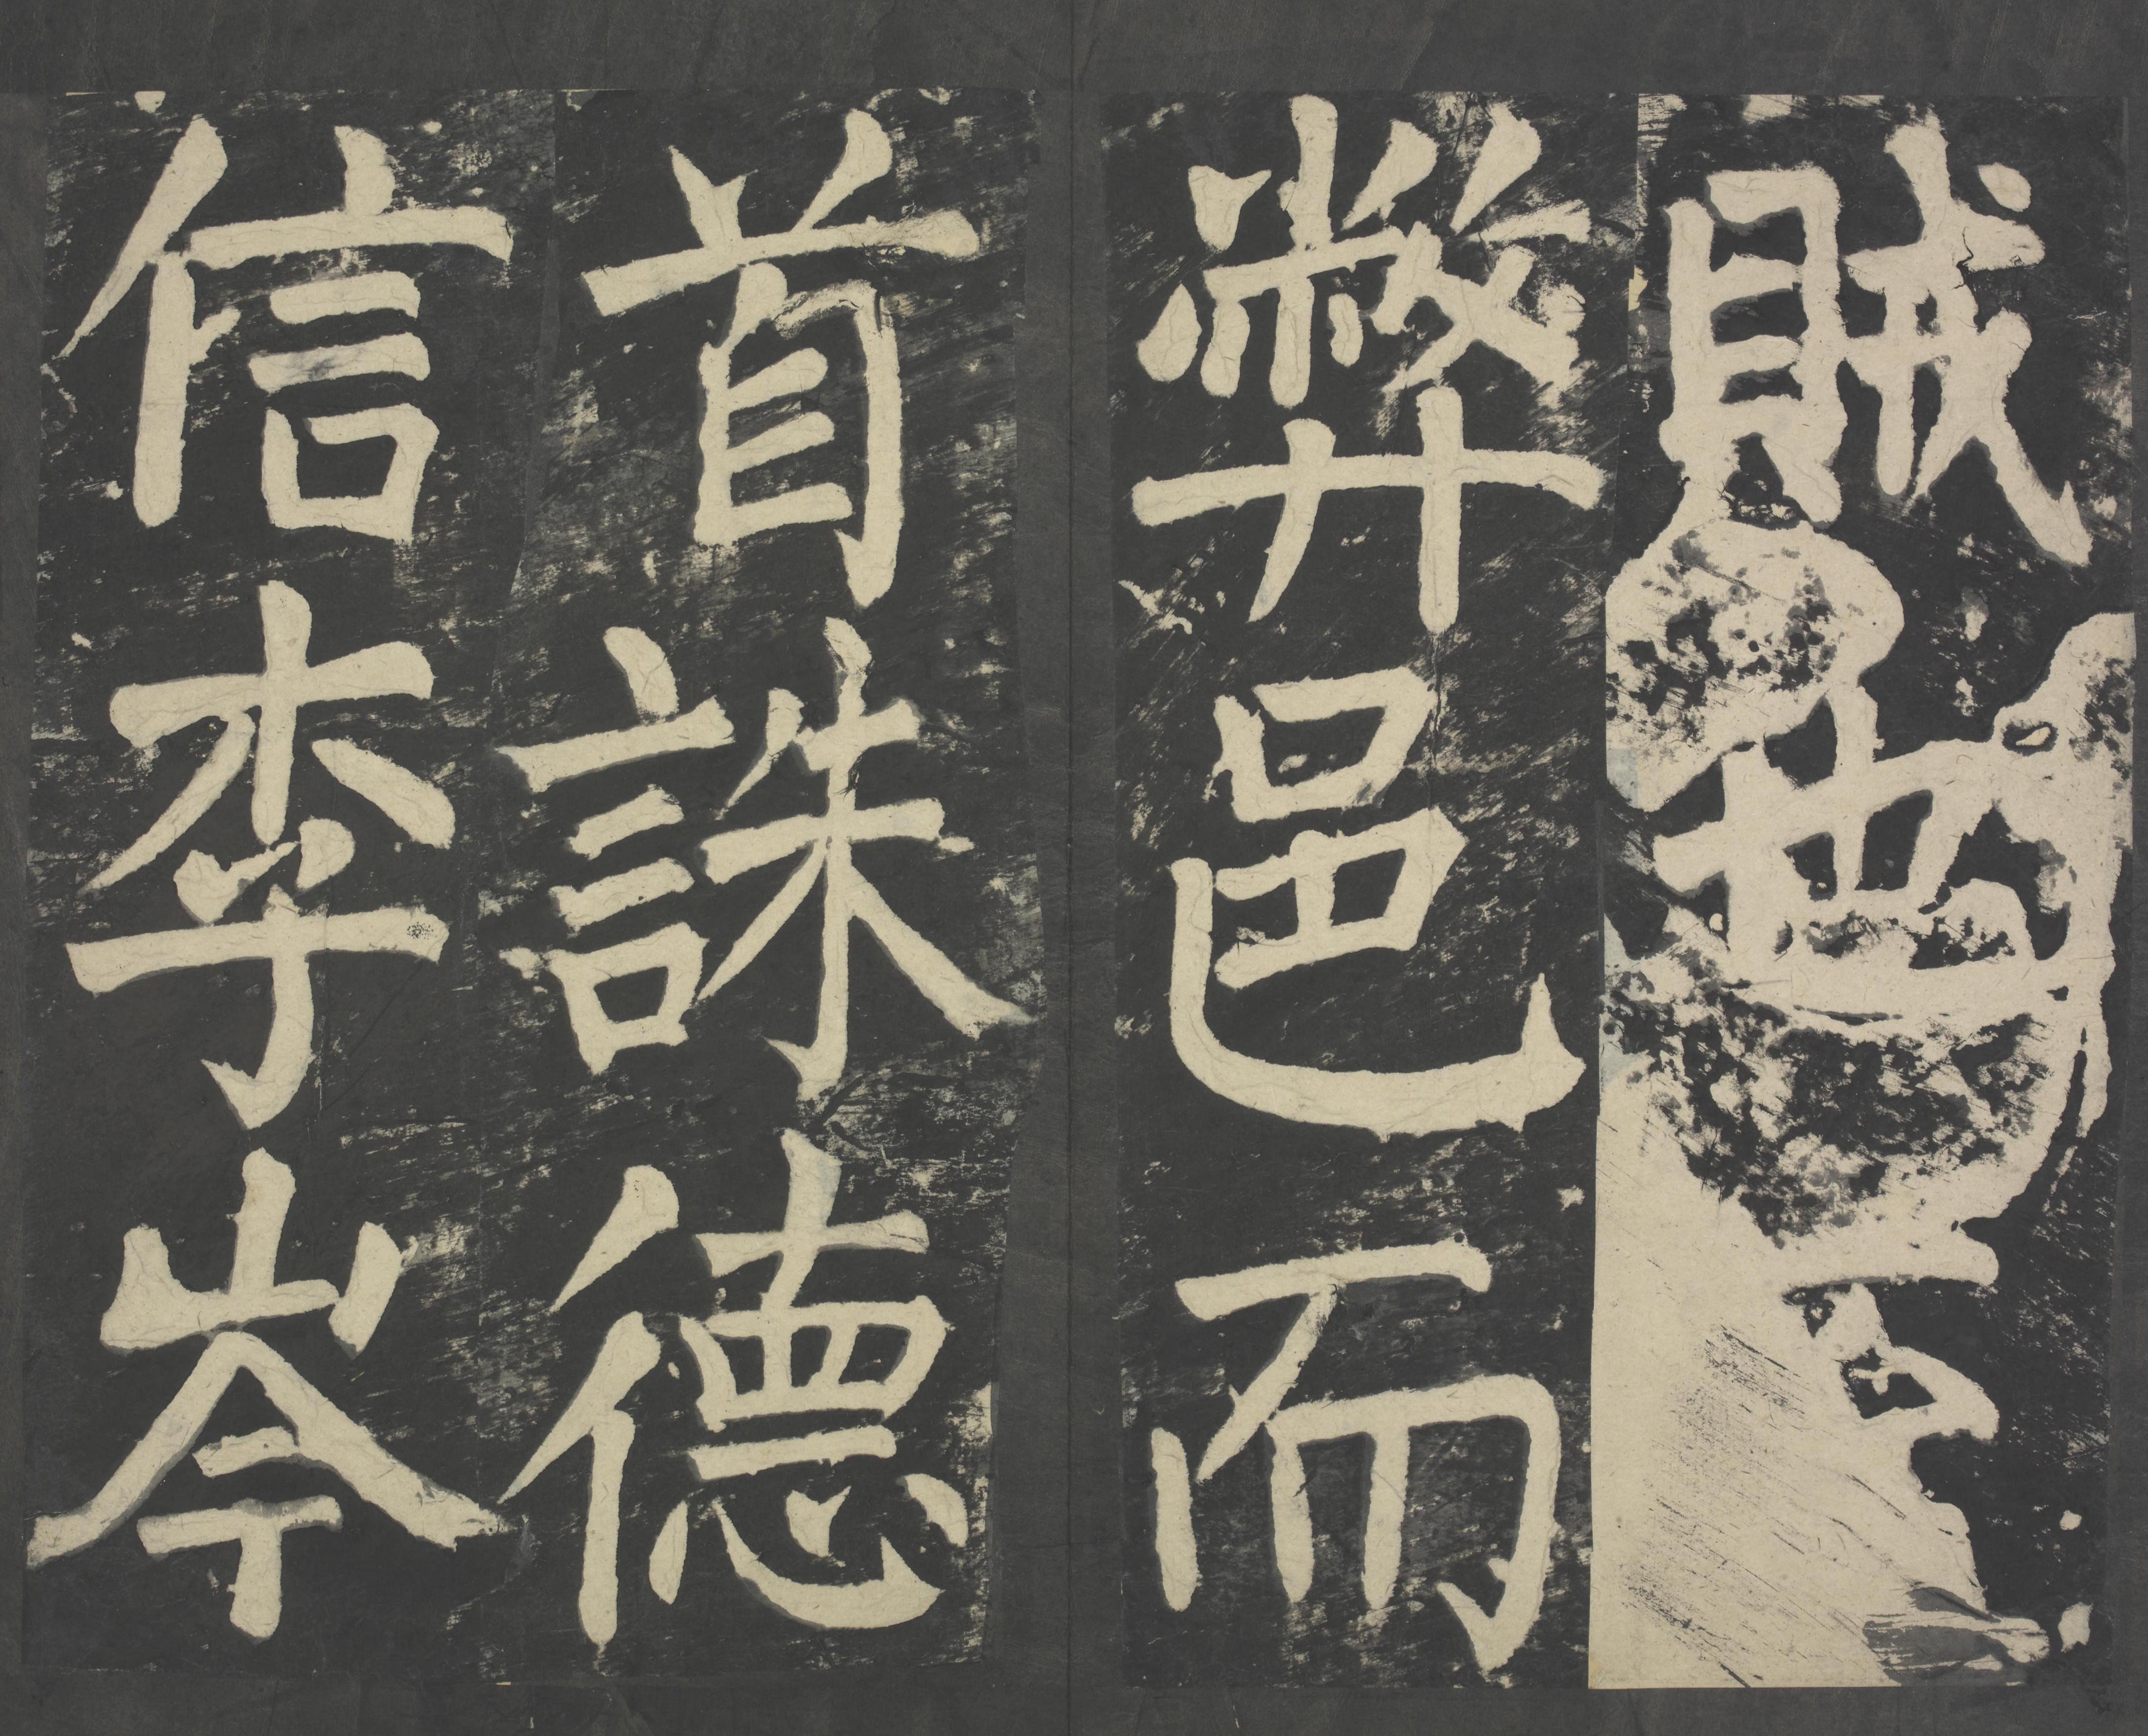 賊
弊邑而
首誅德
信李岑